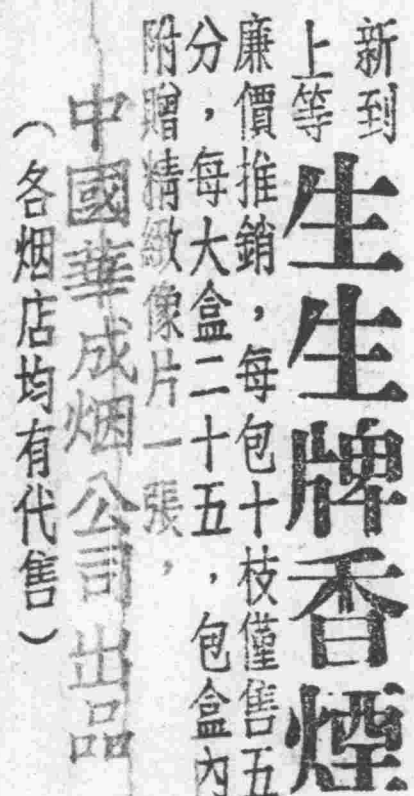 新到
上等
生生牌香煙
廉價推銷，每包十枝僅售五
分，每大盒二十五，包盒內
附贈精緻像片一張，
中國華成烟公司出品
（各烟店均有代售）